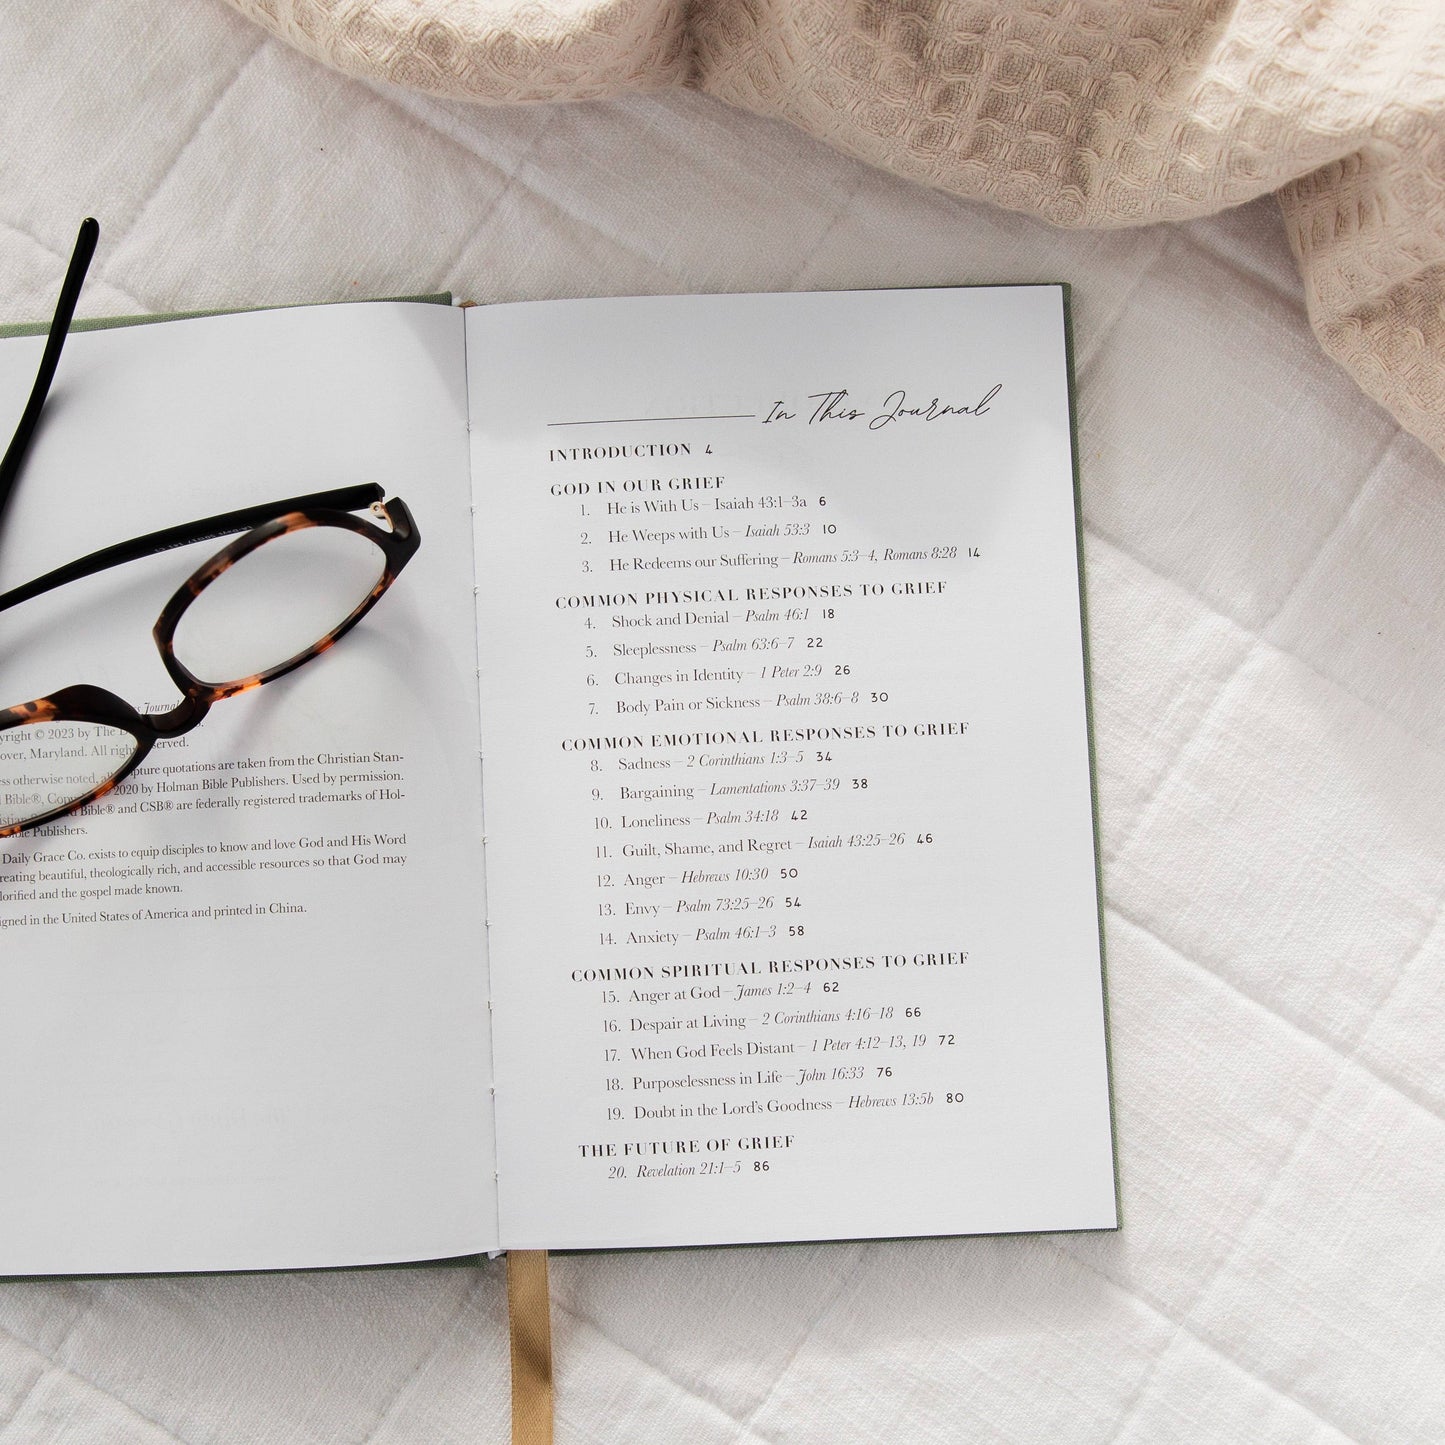 Journal
yright © 2023 by The
over, Maryland. All rights reserved.
ess otherwise noted, all scripture quotations are taken from the Christian Stan-
Bible®, 2020 by Holman Bible Publishers. Used by permission.
Bible® and CSB® are federally registered trademarks of Hol-
Bible Publishers.
Daily Grace Co. exists to equip disciples to know and love God and His Word
reating beautiful, theologically rich, and accessible resources so that God may
lorified and the gospel made known.
igned in the United States of America and printed in China.
In This Journal
INTRODUCTION 4
GOD IN OUR GRIEF
1. He is With Us – Isaiah 43:1–3a 6
2. He Weeps with Us – Isaiah 53:3 10
3. He Redeems our Suffering – Romans 5:3–4, Romans 8:28 14
COMMON PHYSICAL RESPONSES TO GRIEF
4. Shock and Denial – Psalm 46:1 18
5. Sleeplessness – Psalm 63:6–7 22
6. Changes in Identity – 1 Peter 2:9 26
7. Body Pain or Sickness – Psalm 38:6–8 30
COMMON EMOTIONAL RESPONSES TO GRIEF
8. Sadness – 2 Corinthians 1:3–5 34
9. Bargaining – Lamentations 3:37–39 38
10. Loneliness – Psalm 34:18 42
11. Guilt, Shame, and Regret – Isaiah 43:25–26 46
12. Anger – Hebrews 10:30 50
13. Envy – Psalm 73:25–26 54
14. Anxiety – Psalm 46:1–3 58
COMMON SPIRITUAL RESPONSES TO GRIEF
15. Anger at God – James 1:2–4 62
16. Despair at Living – 2 Corinthians 4:16–18 66
17. When God Feels Distant – 1 Peter 4:12–13, 19 72
18. Purposelessness in Life – John 16:33 76
19. Doubt in the Lord's Goodness – Hebrews 13:5b 80
THE FUTURE OF GRIEF
20. Revelation 21:1–5 86